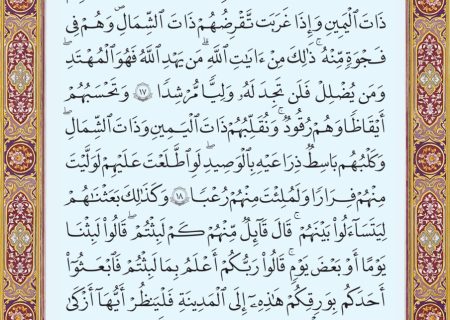 ذَاتَ ٱلْيَمِينِ وَإِذَا غَرَبَت تَّقْرِضُهُمْ ذَاتَ ٱلشِّمَالِ وَهُمْ فِى
فَجْوَةٍ مِّنْهُ ۚ ذَٰلِكَ مِنْ ءَايَٰتِ ٱللَّهِ ۗ مَن يَهْدِ ٱللَّهُ فَهُوَ ٱلْمُهْتَدِ ۖ
وَمَن يُضْلِلْ فَلَن تَجِدَ لَهُۥ وَلِيًّا مُّرْشِدًا ١٧ وَتَحْسَبُهُمْ
أَيْقَاظًا وَهُمْ رُقُودٌ ۚ وَنُقَلِّبُهُمْ ذَاتَ ٱلْيَمِينِ وَذَاتَ ٱلشِّمَالِ ۖ
وَكَلْبُهُم بَٰسِطٌ ذِرَاعَيْهِ بِٱلْوَصِيدِ ۚ لَوِ ٱطَّلَعْتَ عَلَيْهِمْ لَوَلَّيْتَ
مِنْهُمْ فِرَارًا وَلَمُلِئْتَ مِنْهُمْ رُعْبًا ١٨ وَكَذَٰلِكَ بَعَثْنَٰهُمْ
لِيَتَسَآءَلُوا۟ بَيْنَهُمْ ۚ قَالَ قَآئِلٌ مِّنْهُمْ كَمْ لَبِثْتُمْ ۖ قَالُوا۟ لَبِثْنَا
يَوْمًا أَوْ بَعْضَ يَوْمٍ ۚ قَالُوا۟ رَبُّكُمْ أَعْلَمُ بِمَا لَبِثْتُمْ فَٱبْعَثُوٓا۟
أَحَدَكُم بِوَرِقِكُمْ هَٰذِهِۦٓ إِلَى ٱلْمَدِينَةِ فَلْيَنظُرْ أَيُّهَآ أَزْكَىٰ